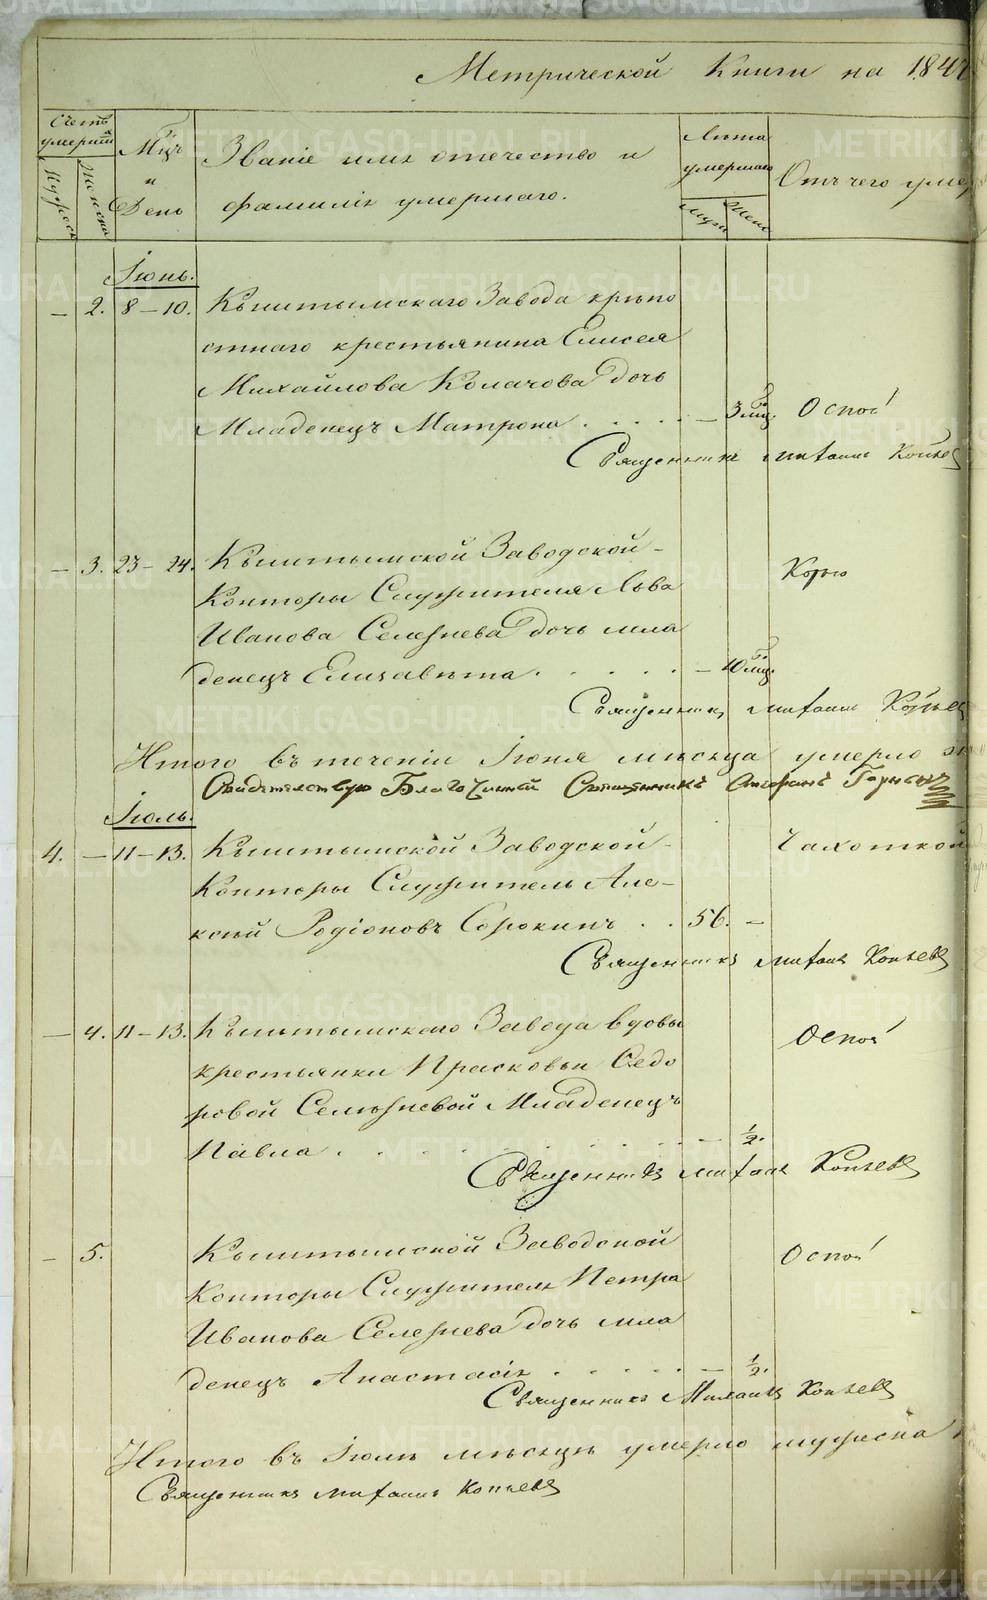 Метрической Книги на 184
Счетъ умершихъ
Мужеска
Женска
Мцъ и День
Званіе имя отечество и
фамилія умершаго.
Лѣта умершаго
Муж
Жен
Отъ чего умер
Іюнь.
— 2. 8 – 10. Кыштымскаго Завода крѣпо
стнаго крестьянина Елисея
Михайлова Колачова дочь
Младенецъ Матрона . . . . . — 3 мц. Оспой
Священникъ Михаилъ Копьев
— 3. 23 – 24. Кыштымской Заводской Корью
Конторы Служителя Льва
Иванова Селезнева дочь мла
денецъ Елизавѣта . . . . . — 10 мц.
Священникъ Михаилъ Копьев
Итого въ теченіи Іюня мѣсяца умерло
Свидѣтельствую Благочинный Священникъ Стефанъ
Іюль.
4. — 11 – 13. Кыштымской Заводской Чахоткой
Конторы Служитель Але-
ксѣй Родіоновъ Сорокинъ . . 56. —
Священникъ Михаилъ Копьевъ
— 4. 11 – 13. Кыштымскаго Завода вдовы Оспой
крестьянки Прасковьи Седо
ровой Селезневой Младенецъ
Павла . . . . . . — ½.
Священникъ Михаилъ Копьевъ
— 5. Кыштымской Заводской Оспой
Конторы Служителя Петра
Иванова Селезнева дочь мла
денецъ Анастасія . . . . . — ½.
Священникъ Михаилъ Копьевъ
Итого въ Іюлѣ мѣсяцѣ умерло мужеска
Священникъ Михаилъ Копьевъ
METRIKI.GASO-URAL.RU